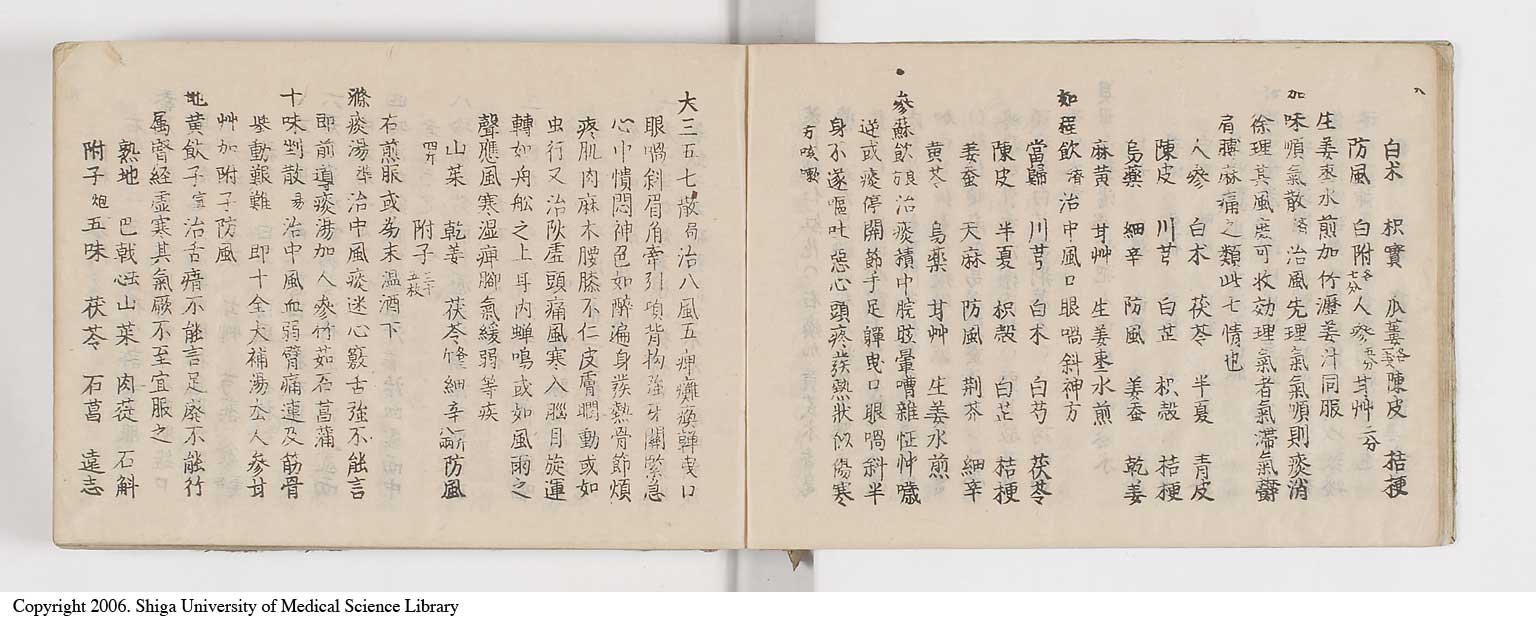 八
白朮 枳實 瓜蔞各五分 陳皮 桔梗
防風 白附各七分 人參五分 甘艸二分
生姜枣水煎加竹瀝姜汁同服
加味順氣散 治風先理氣氣順則痰消
徐理其風庶可收効理氣者氣滞氣欝
肩膊麻痛之類此七情也
人參 白朮 茯苓 半夏 青皮
陳皮 川芎 白芷 枳殻 桔梗
烏藥 細辛 防風 姜蚕 乾姜
麻黄 甘艸 生姜枣水煎
如程飲 治中風口眼喎斜神方
當歸 川芎 白朮 白芍 茯苓
陳皮 半夏 枳殻 白芷 桔梗
姜蚕 天麻 防風 荆芥 細辛
黄芩 烏藥 甘艸 生姜水煎
參蘇飲 治痰積中脘眩暈嘈雜怔忡噦
逆或痰停関節手足嚲曳口眼喎斜半
身不遂嘔吐惡心頭疼発熱状似傷寒
方咳嗽
大三五七散 局 治八風五痺癱瘓嚲曳口
眼喎斜眉角牽引項背拘強牙關緊急
心中憒悶神色如醉遍身発熱骨節煩
疼肌肉麻木腰膝不仁皮膚瞤動或如
虫行又治阳虚頭痛風寒入腦目旋運
轉如舟舩之上耳内蝉鳴或如風雨之
聲應風寒湿痺脚氣緩弱等疾
山茱 乾姜 茯苓 細辛 防風
附子
右煎服或為末温酒下
滌痰湯 治中風痰迷心竅舌強不能言
即前導痰湯加人參竹茹石菖蒲
十味剉散 易 治中風血弱臂痛連及筋骨
挙動艱難 即十全大補湯去人參甘
艸加附子防風
地黄飲子 宣 治舌瘖不能言足廢不能行
属腎經虚寒其氣厥不至宜服之
熟地 巴戟心 山茱 肉蓯 石斛
附子炮 五味 茯苓 石菖 遠志
Copyright 2006. Shiga University of Medical Science Library